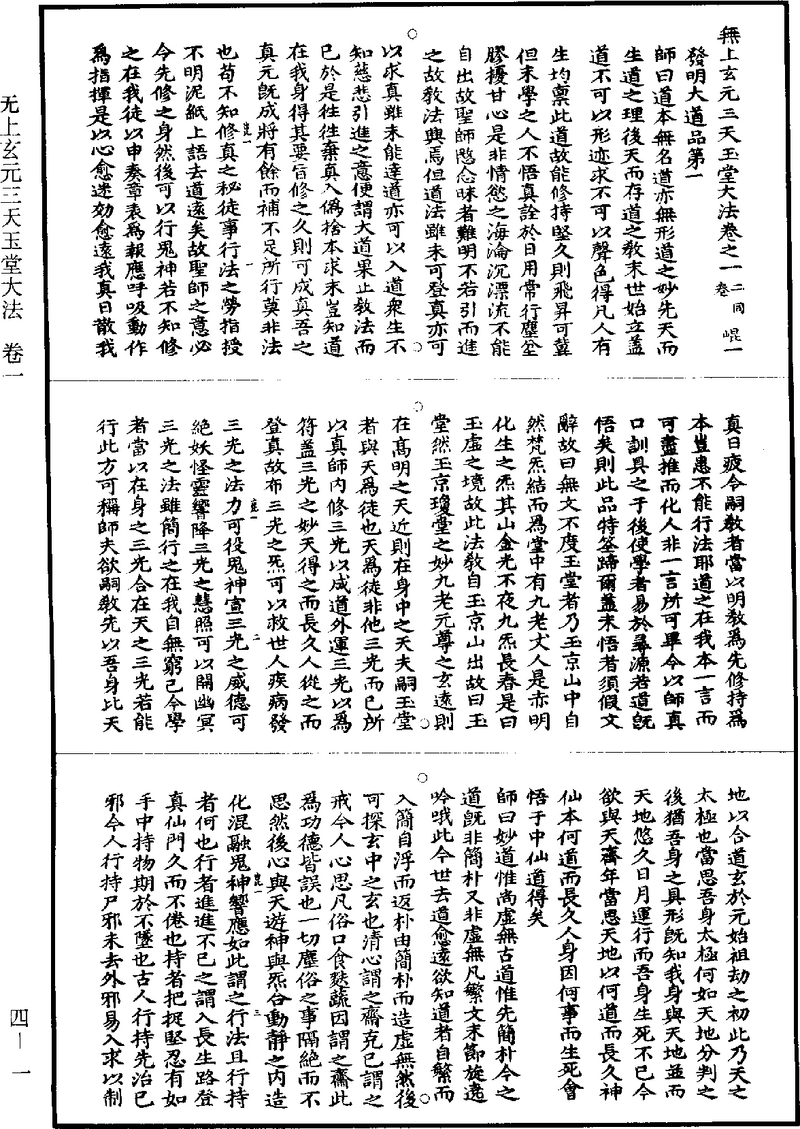 無上玄元三天玉堂大法卷之一 二同卷 崐一
發明大道品第一
師曰道本無名道亦無形道之妙先天而
生道之理後天而存道之教末世始立蓋
道不可以形迹求不可以聲色得凡人有
生均稟此道故能修持堅久則飛昇可冀
但末學之人不悟真詮於日用常行塵坌
膠擾甘心是非情慾之海淪沉漂流不能
自出故聖師愍念昧者難明不若引而進
之故教法興焉但道法雖未可登真亦可
以求真雖未能達道亦可以入道衆生不
知慈悲引進之意便謂大道果止教法而
已於是往往棄真入僞捨本求末豈知道
在我身得其要旨修之久則可成真吾之
真元既成將有餘而補不足所行莫非法
也苟不知修真之秘徒事行法之勞指授
不明泥紙上語去道遠矣故聖師之意必
令先修之身然後可以行鬼神若不知修
之在我徒以申奏章表爲報應呼吸動作
爲指揮是以心愈迷効愈遠我真日散我
真日疲今嗣教者當以明教爲先修持爲
本豈患不能行法耶道之在我本一言而
可盡推而化人非一言所可畢今以師真
口訓具之于後使學者易於尋源若道既
悟矣則此品特筌蹄爾蓋未悟者須假文
辭故曰無文不度玉堂者乃玉京山中自
然梵炁結而爲堂中有九老丈人是亦明
化生之炁其山金光不夜九炁長春是曰
玉虛之境故此法教自玉京山出故曰玉
堂然玉京瓊堂之妙九老元尊之玄遠則
在髙明之天近則在身中之天夫嗣玉堂
者與天爲徒也天爲徒非他三光而已所
以真師内修三光以成道外運三光以爲
符蓋三光之妙天得之而長久人從之而
登真故布三光之炁可以救世人疾病發
三光之法力可役鬼神宣三光之威德可
絶妖怪靈響降三光之慧照可以開幽冥
三光之法雖簡行之在我自無窮已今學
者當以在身之三光合在天之三光若能
行此方可稱師夫欲嗣教先以吾身比天
地以合道玄於元始祖劫之初此乃天之
太極也當思吾身太極何如天地分判之
後猶吾身之具形既知我身與天地並而
天地悠久日月運行而吾身生死不已今
欲與天齊年當思天地以何道而長久神
仙本何道而長久人身因何事而生死會
悟于中仙道得矣
師曰妙道惟尚虛無古道惟先簡朴今之
道既非簡朴又非虛無凡繁文末節旋遶
吟哦此今世去道愈遠欲知道者自繁而
入簡自浮而返朴由簡朴而造虛無然後
可探玄中之玄也清心謂之齋克已謂之
戒今人心思凡俗口食麨蔬因謂之齋此
爲功德皆誤也一切塵俗之事隔絶而不
思然後心與天遊神與炁合動靜之内造
化混融鬼神響應如此謂之行法且行持
者何也行者進進不已之謂入長生路登
真仙門久而不倦也持者把捉堅忍有如
手中持物期於不墜也古人行持先治已
邪今人行持尸邪未去外邪易入求以制
无上玄元三天玉堂大法 卷一
四—一